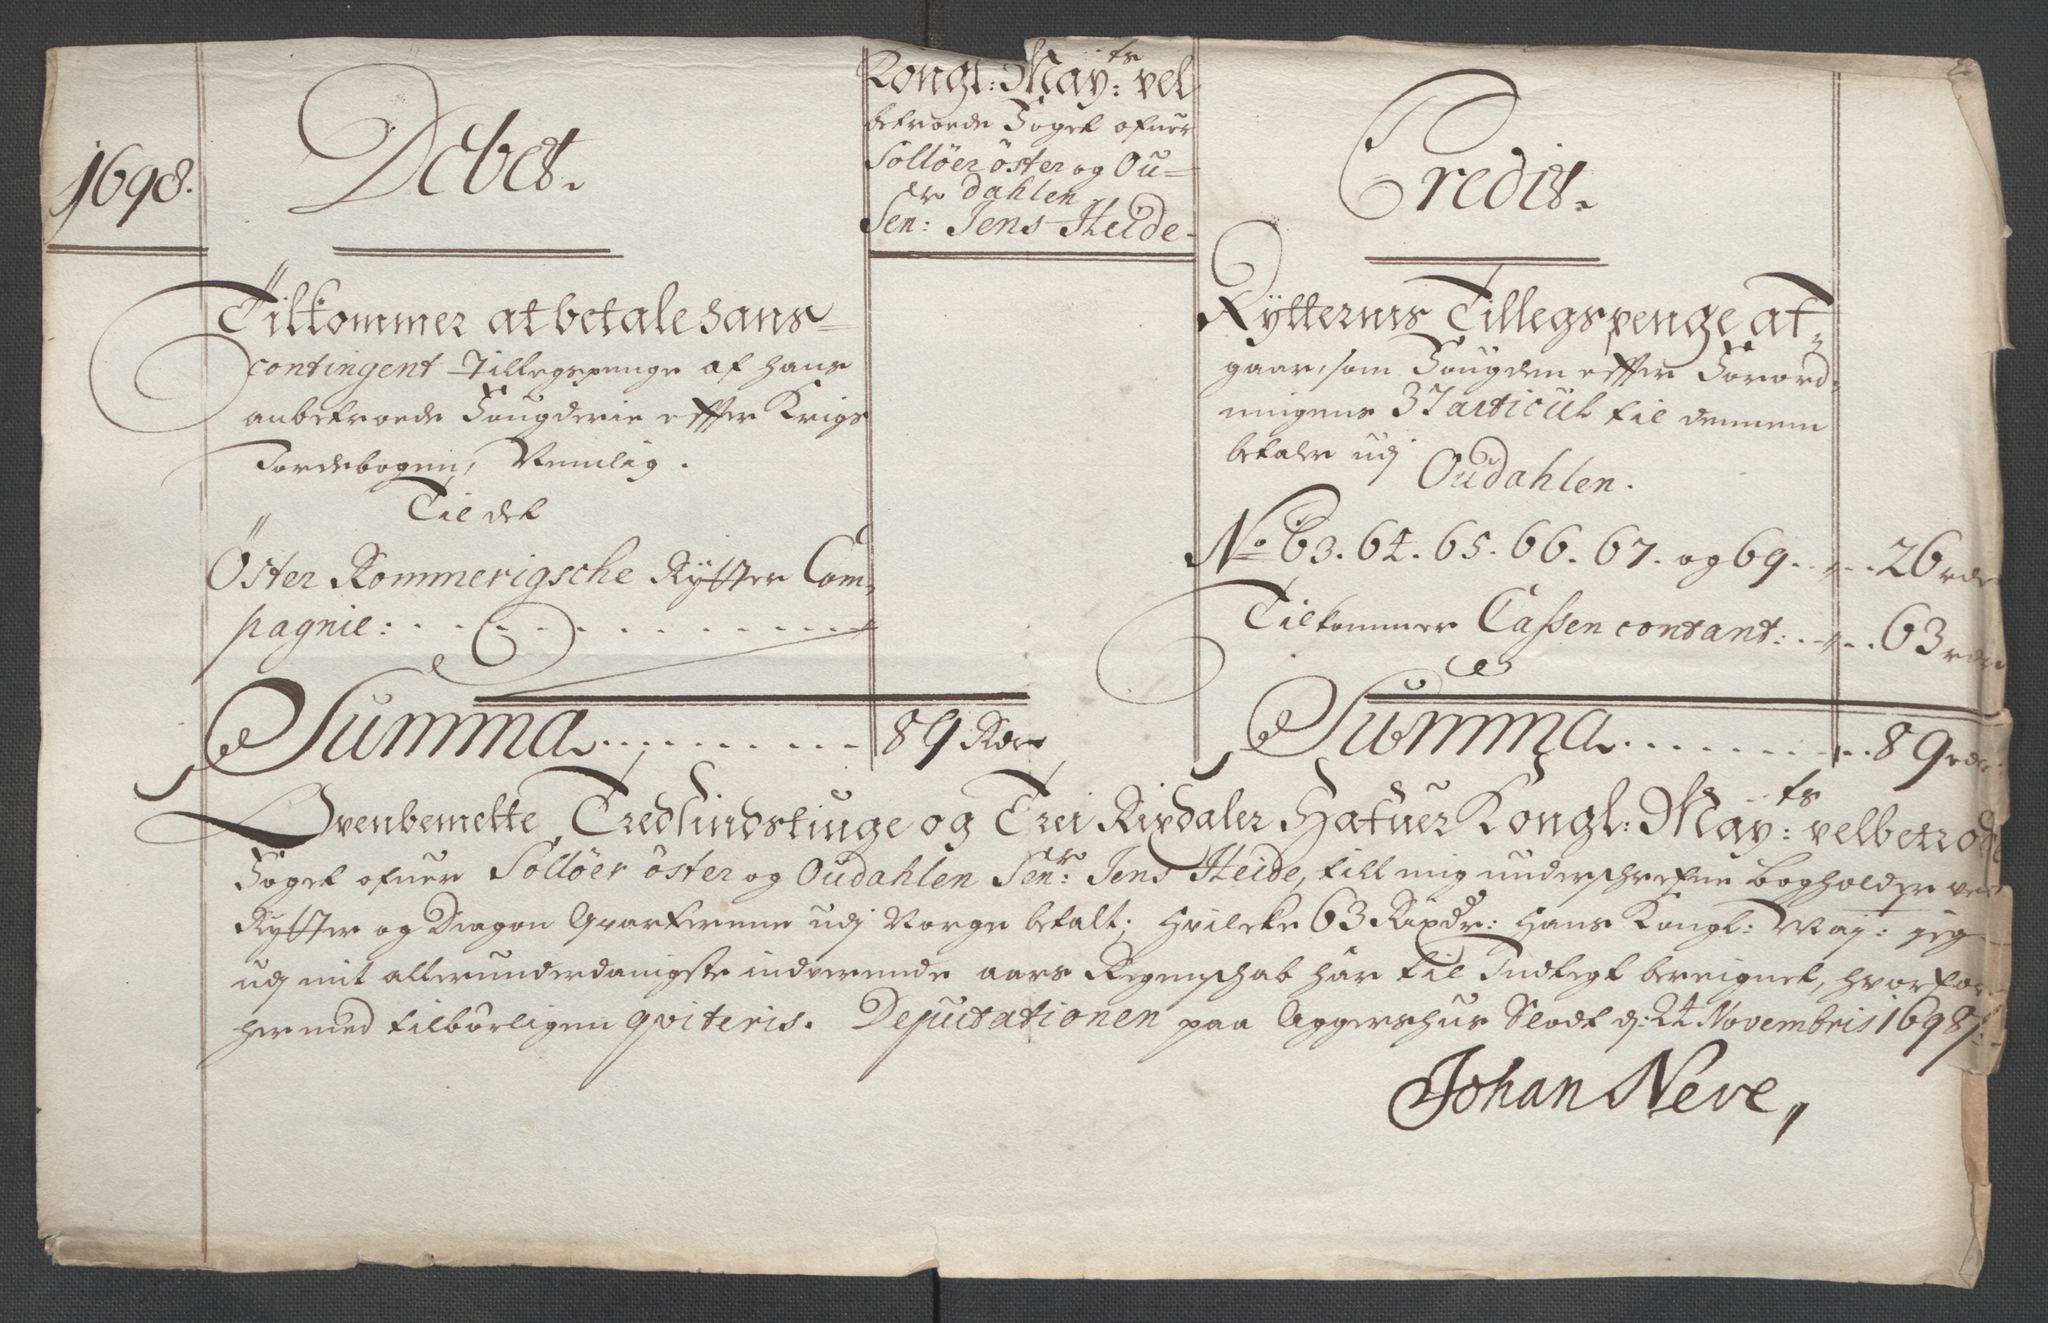 1698.
Debet.
Kongl: May:ts vel
betroede Foget ofuer
Sollöer öster og Ou=
dahlen
Sen:r Jens Heide
Credit.
Tilkommer at betale hans
contingent Tillegspenge af hans
anbetroede Fougderie effter Krigs
Jordebogen, Nemlig.
Til det
Öster Rommerigsche Rytter Com,
pagnie:
Summa 89 Rdr
Rytternis Tillegspenge af,
gaar, som Fougden effter Forord,
ningens 37 articul til dennem
betaler udj
Oudahlen.
No 63. 64. 65. 66. 67. og 69. 26 rdr
Tilkommer Cassen contant: 63 rdr
Summa 89 rdr
Ovenbemelte Tredsindstiuge og Trei Rixdaler Hafuer Kongl: May:ts velbetrode
Foget ofuer Sollöer öster og Oudahlen Sen:r Jens Heide, till mig underschrefne Bogholder ved
Rytter og Dragon Qvarterene udj Norge betalt; Hvilcke 63 Rixdr: Hans Kongl: May: jeg
udj mit allerunderdanigste indverende aars Regenschab har til Indtegt bereignet, hvorfor
hermed tilbörligen qviteris. Deputationen paa Aggershus Slodt d: 24 Novembris 1698
Johan Neve,